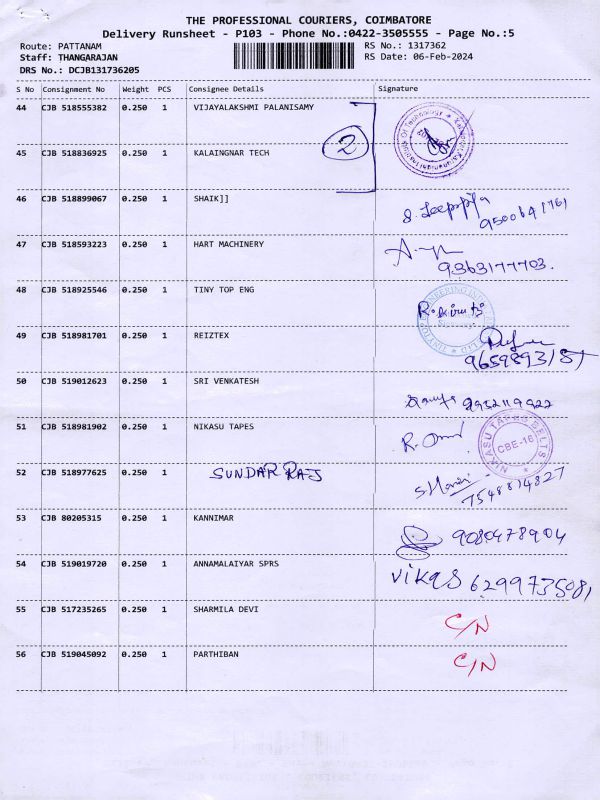 THE PROFESSIONAL COURIERS, COIMBATORE
Delivery Runsheet - P103 - Phone No.:0422-3505555 - Page No.:5
Route: PATTANAM RS No.: 1317362
Staff: THANGARAJAN RS Date: 06-Feb-2024
DRS No.: DCJB131736205
S No Consignment No Weight PCS Consignee Details Signature
44 CJB 518555382 0.250 1 VIJAYALAKSHMI PALANISAMY
2
45 CJB 518836925 0.250 1 KALAINGNAR TECH
46 CJB 518899067 0.250 1 SHAIK]]
47 CJB 518593223 0.250 1 HART MACHINERY
9363177703.
48 CJB 518925546 0.250 1 TINY TOP ENG
49 CJB 518981701 0.250 1 REIZTEX
50 CJB 519012623 0.250 1 SRI VENKATESH
9952119922
51 CJB 518981902 0.250 1 NIKASU TAPES
NIKASU TAPES BELTS CBE-16
52 CJB 518977625 0.250 1 SUNDAR RAJ
7548814827
53 CJB 80205315 0.250 1 KANNIMAR
9080478904
54 CJB 519019720 0.250 1 ANNAMALAIYAR SPRS
vikas 6299735081
55 CJB 517235265 0.250 1 SHARMILA DEVI
C/N
56 CJB 519045092 0.250 1 PARTHIBAN
C/N